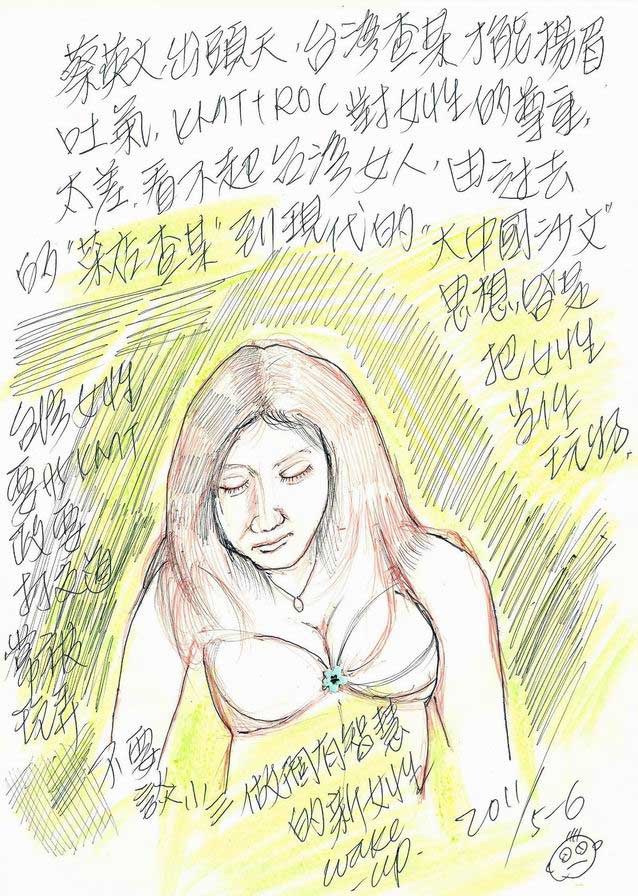 蔡英文出頭天,台灣查某才能揚眉
吐氣, KMT+ROC 對女性的尊重,
太差,看不起台灣女人,由過去
的"菜店查某"到現代的"大中國沙文"
思想,皆是
把女性
當作
玩物.
台灣女性
要㸃 KMT
政要
打交道
常被
玩弄
不要
談小三做個有智慧
的新女性
wake
-up-
2011/5-6